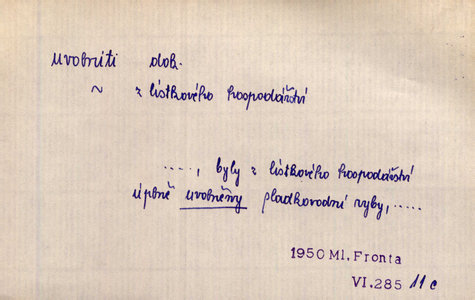 uvolniti dok.
~ z lístkového hospodářství
....., byly z lístkového hospodářství
úplně uvolněny sladkovodní ryby, .....
1950 Ml. Fronta
VI.285 11 c